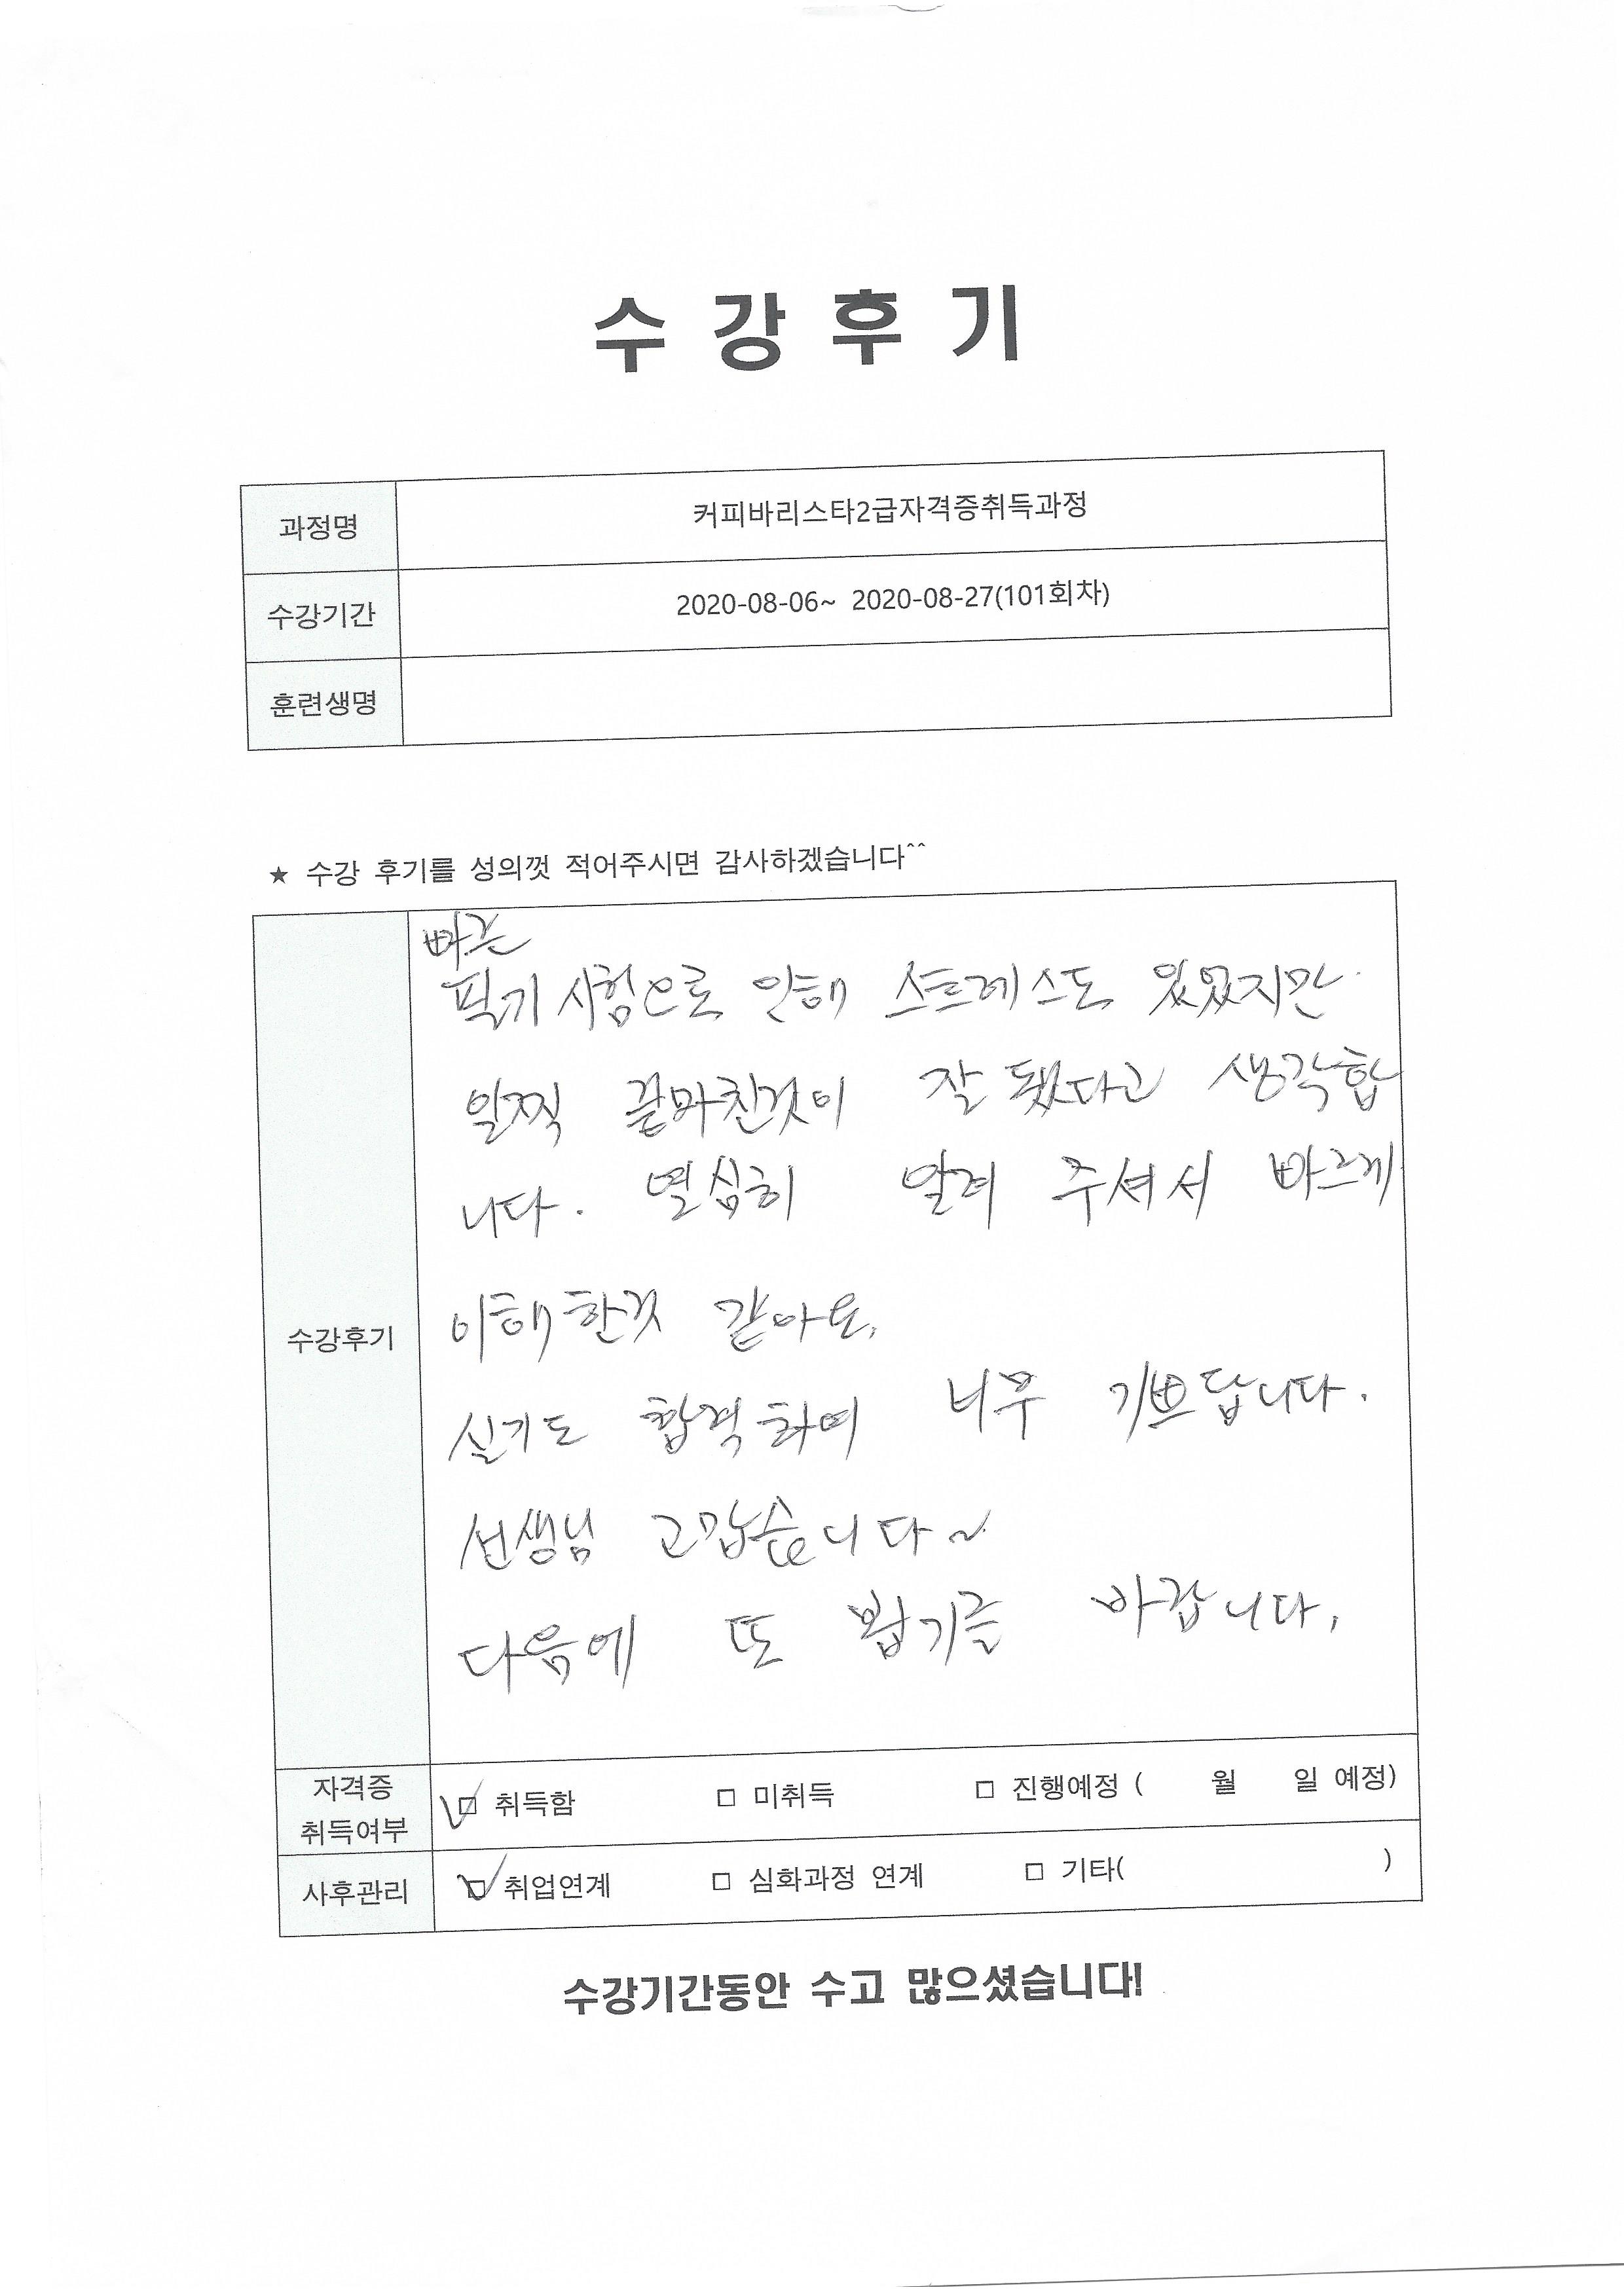 수 강 후 기
과정명 커피바리스타2급자격증취득과정
수강기간 2020-08-06~ 2020-08-27(101회차)
훈련생명
★ 수강 후기를 성의껏 적어주시면 감사하겠습니다^^
빠른
필기 시험으로 인해 스트레스도 있었지만
일찍 끝마친것이 잘 됐다고 생각합
니다. 열심히 알려 주셔서 빠르게
이해한것 같아요.
수강후기
실기도 합격하여 너무 기쁘답니다.
선생님 고맙습니다~
다음에 또 뵙기를 바랍니다.
자격증
취득여부
□ 취득함 □ 미취득 □ 진행예정 ( 월 일 예정)
사후관리 □ 취업연계 □ 심화과정 연계 □ 기타( )
수강기간동안 수고 많으셨습니다!